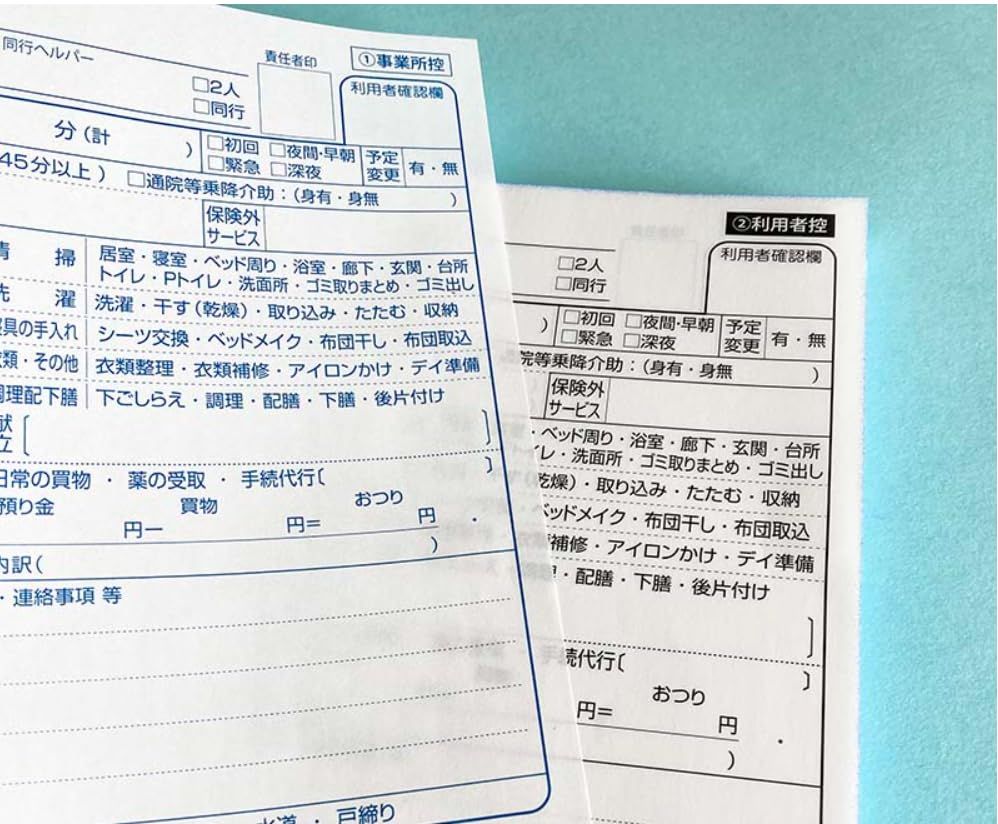 同行ヘルパー
責任者印
①事業所控
□2人
□同行
利用者確認欄
分(計 )
□初回 □夜間・早朝
□緊急 □深夜
予定
変更
有・無
45分以上) □通院等乗降介助:(身有・身無 )
保険外
サービス
掃 居室・寝室・ベッド周り・浴室・廊下・玄関・台所
トイレ・Pトイレ・洗面所・ゴミ取りまとめ・ゴミ出し
洗濯 洗濯・干す(乾燥)・取り込み・たたむ・収納
具の手入れ シーツ交換・ベッドメイク・布団干し・布団取込
類・その他 衣類整理・衣類補修・アイロンかけ・デイ準備
理配下膳 下ごしらえ・調理・配膳・下膳・後片付け
献
立〔 〕
日常の買物・薬の受取・手続代行〔 〕
預り金 買物 おつり
円ー 円= 円.
内訳( )
・連絡事項 等
水道・戸締り
②利用者控
□2人
□同行
利用者確認欄
) □初回 □夜間・早朝
□緊急 □深夜
予定
変更
有・無
院等乗降介助:(身有・身無 )
保険外
サービス
・ベッド周り・浴室・廊下・玄関・台所
イレ・洗面所・ゴミ取りまとめ・ゴミ出し
乾燥)・取り込み・たたむ・収納
ベッドメイク・布団干し・布団取込
補修・アイロンかけ・デイ準備
・配膳・下膳・後片付け
〕
続代行〔 〕
おつり
円= 円.
)